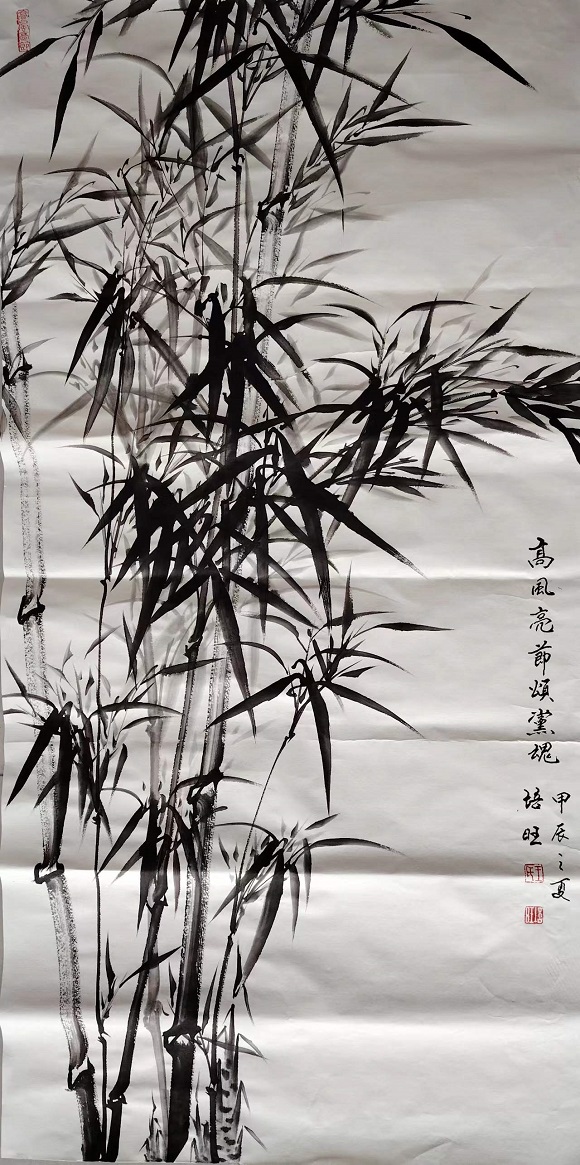 高風亮節頌黨魂
甲辰之夏
培旺